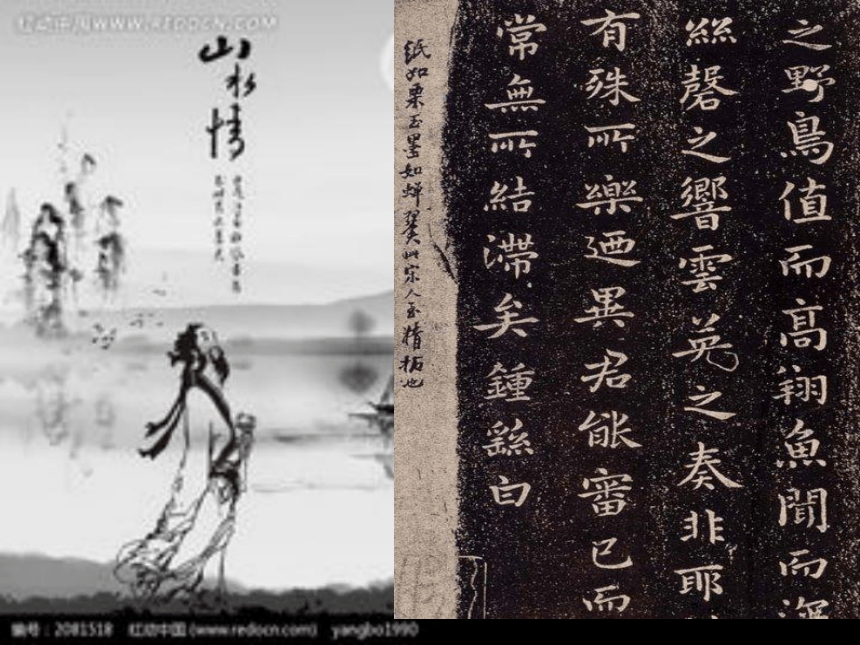 红动中国 WWW.REDOCN.COM
山水情
之野鳥值而高翔魚聞而深
絲磬之響雲英之奏非耶
有殊所樂迺異君能審已而
常無所結滯矣鍾繇白
紙如栗玉墨如蟬翼此宋人至精拓也
编号：2081518 红动中国 (www.redocn.com) yangbo1990